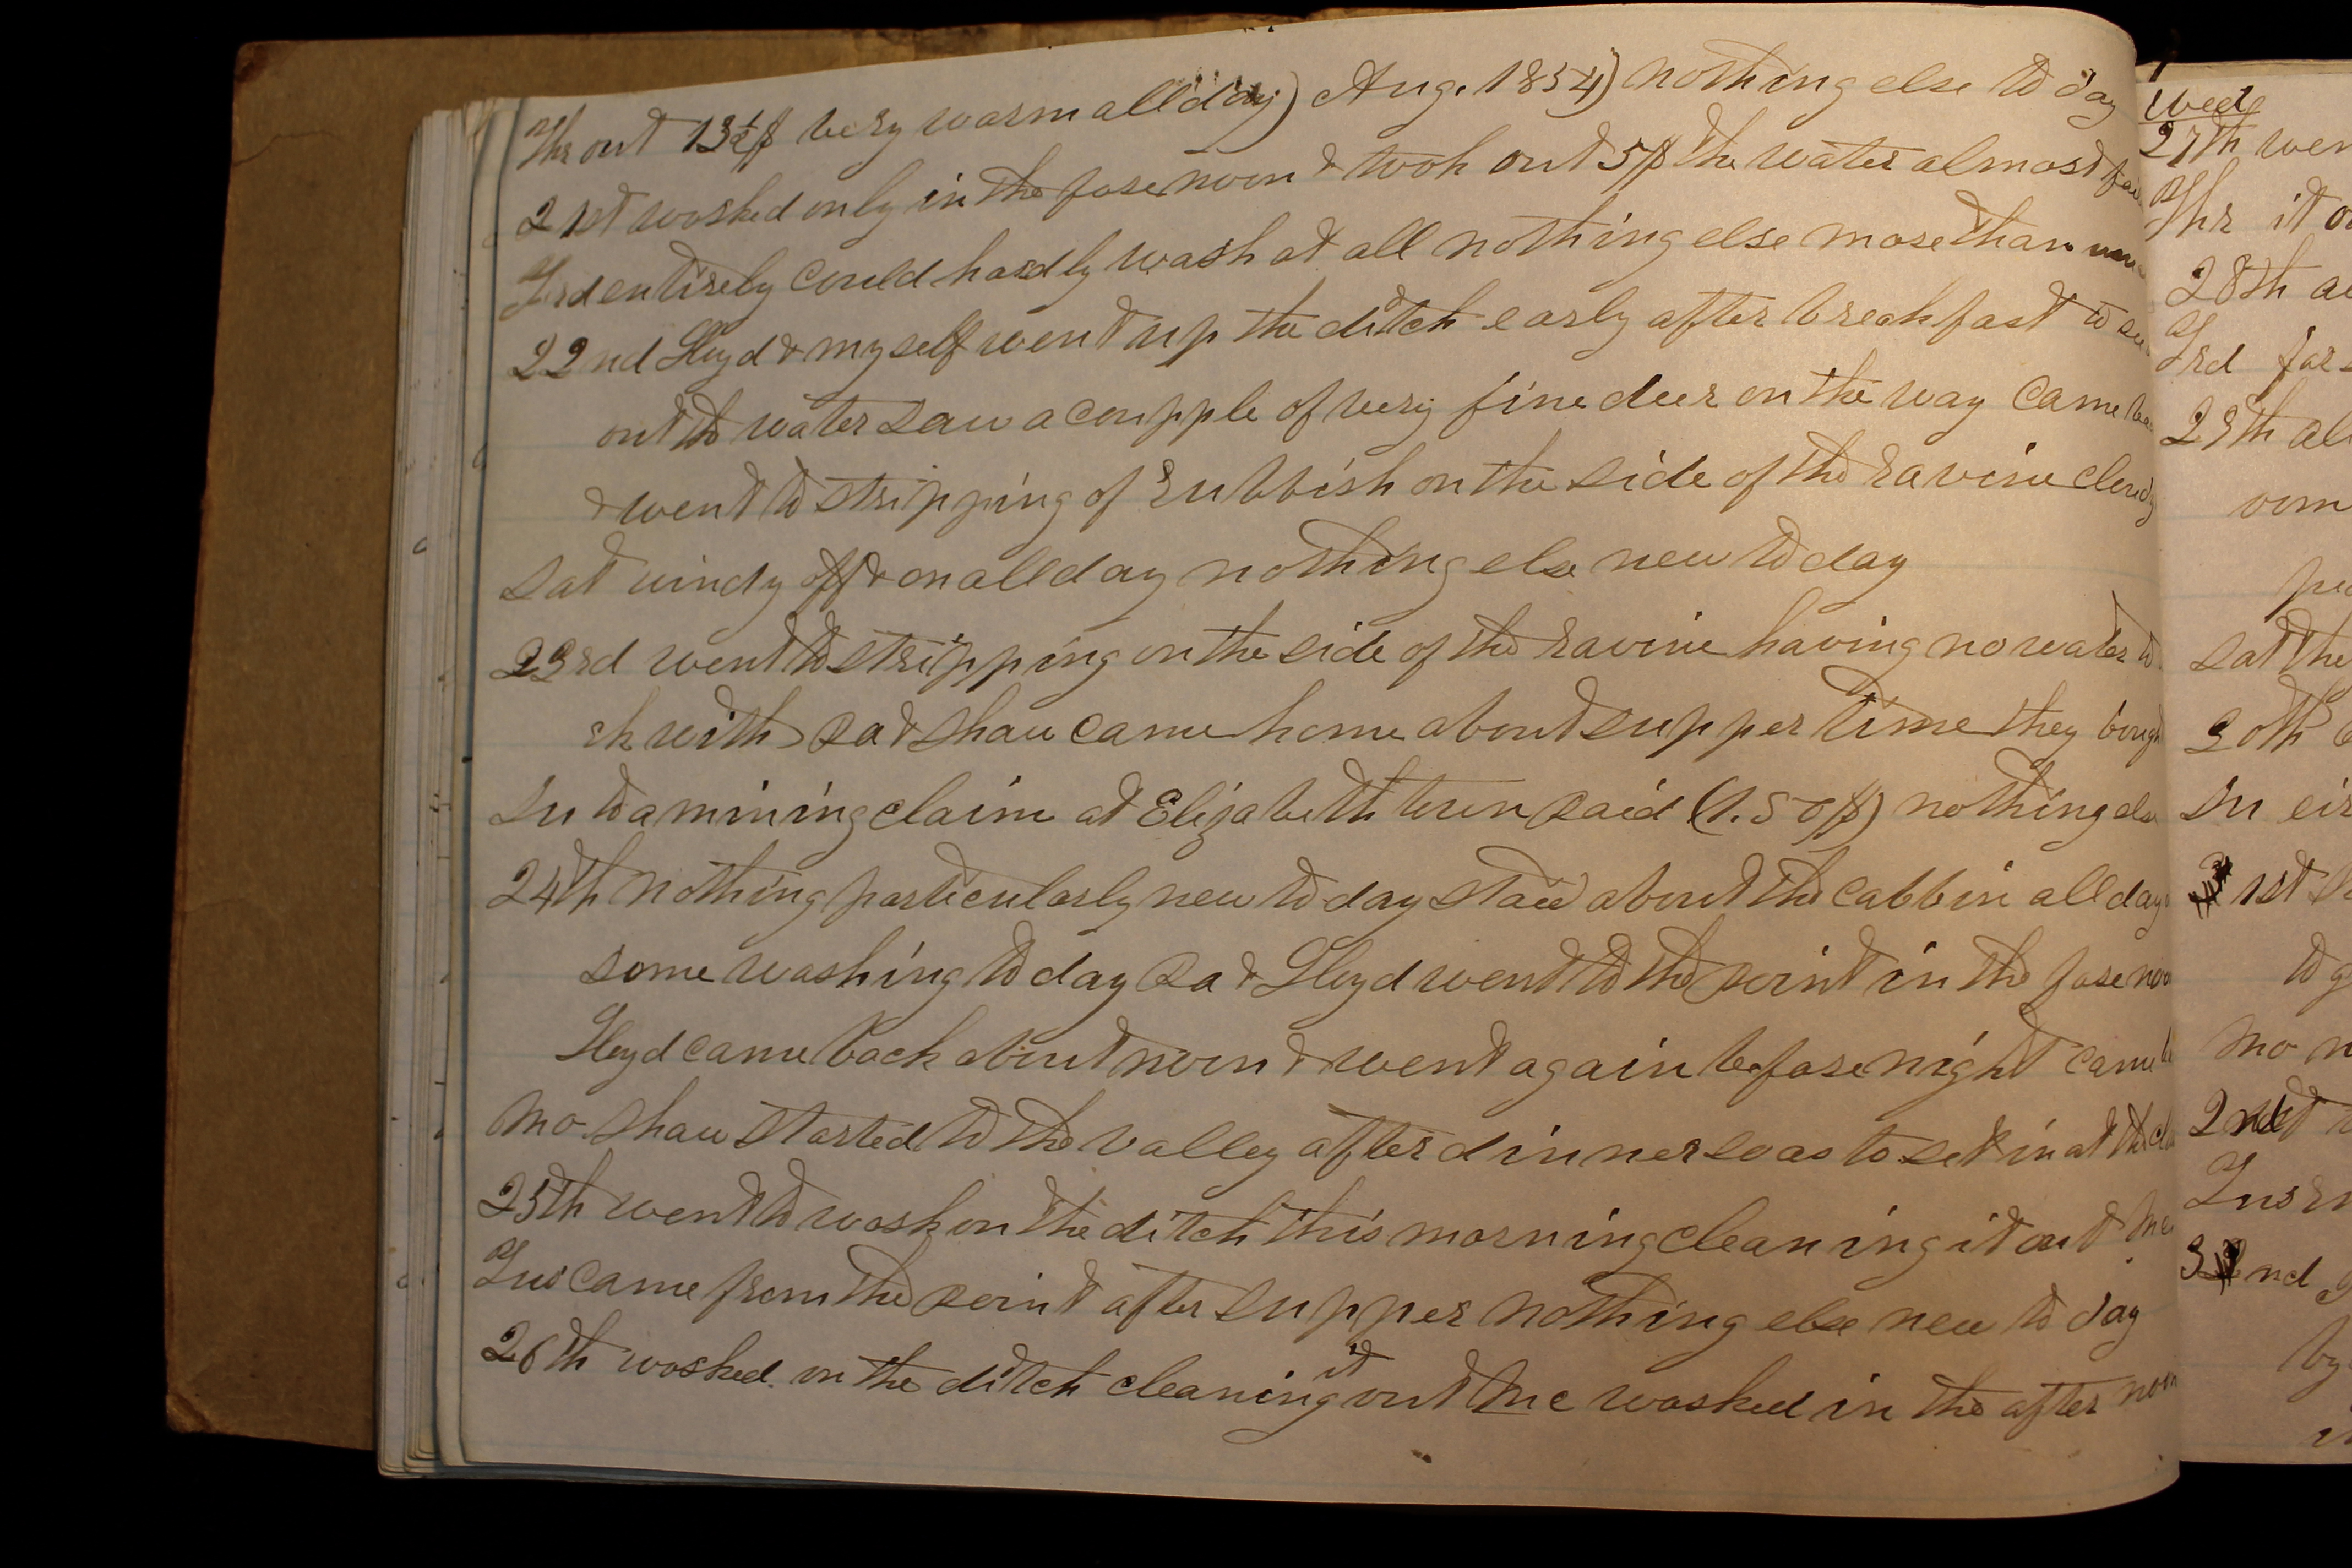 Thr out 13½$ very warm all day) Aug. 1854) nothing else to day
21st worked only in the fore noon & took out 5$ the water almost
Frd entirely could hardly wash at all nothing else more than
22nd Lloyd & myself went up the ditch early after breakfast to see
out the water saw a coupple of very fine deer on the way came
& went to stripping of rubbish on the side of the ravine cloudy
Sat windy off & on all day nothing else new to day
23rd went to stripping on the side of the ravine having no water to
rk with Pa & Shaw came home about supper time they bough
Su to a mining claim at Elizabeth town paid (1.50$) nothing else
24th nothing particularly new to day staid about the cabbin all day
some washing to day Pa & Lloyd went to the point in the fore noon
Lloyd came back about noon & went again before night came
Mo Shaw started to the valley after dinner so as to set in at the
25th went to work on the ditch this morning cleaning it out
Tus came from the point after supper nothing else new to day
26th worked on the ditch cleaning it out Mc worked in the after noon
Wed
27th wen
Thr it
28th
Frd for
29th al
Sat the
30th
Su
1st
to g
Mo n
2nd
Tus
nd
by